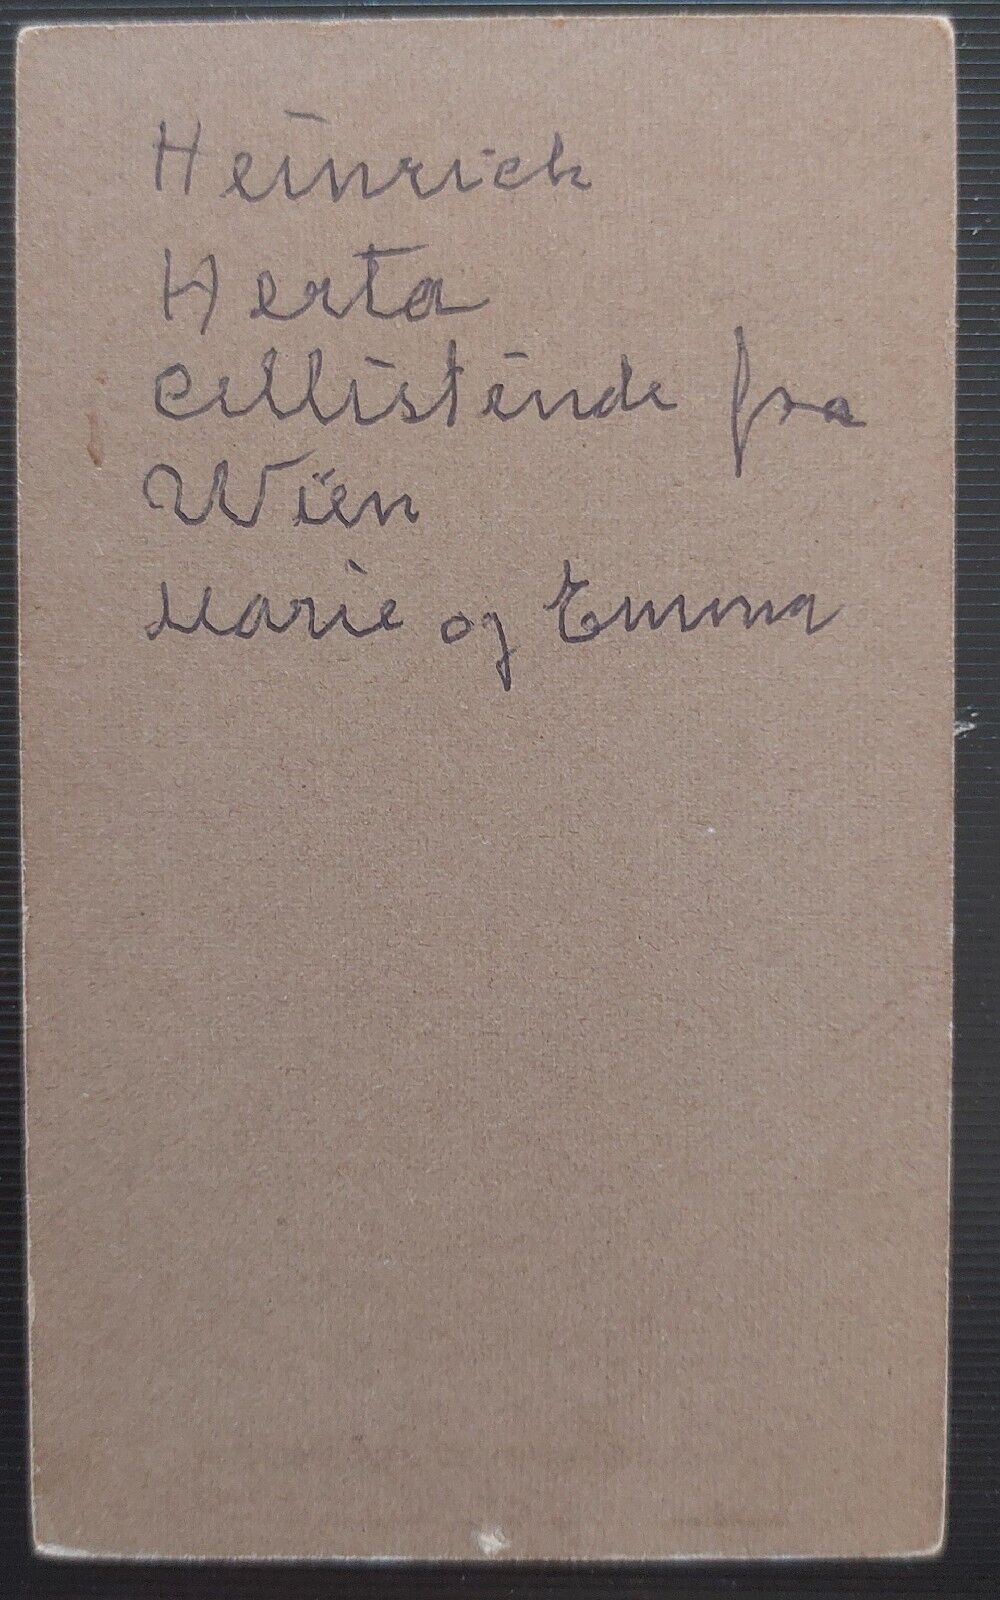 Heinrich
Herta
Cellistinde fra
Wien
Marie og Emma